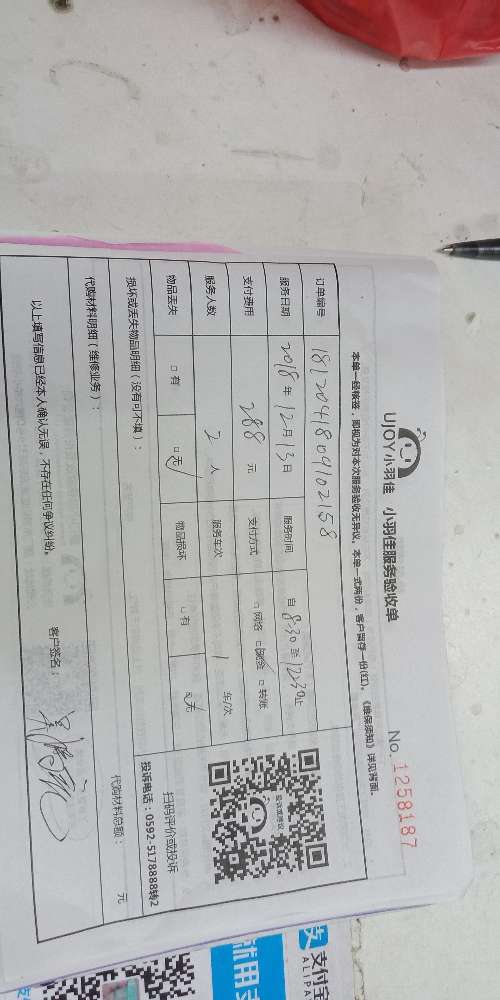 UJOY小羽佳 小羽佳服务验收单
No. 1258187
本单一经核签，即视为对本次服务验收无异议。本单一式两份，客户留存一份(红)。《维保须知》详见背面。
订单编号 1812041809102158
服务日期 2018年12月13日 服务时间 自8:30至12:30止
支付费用 288元 支付方式 □网络 □现金 □转账
服务人数 2人 服务车次 1车/次
物品丢失 □有 □无 物品损坏 □有 □无
损坏或丢失物品明细（没有可不填）：
扫码评价或投诉
投诉电话：0592-5178888转2
代购材料明细（维修业务）：
代购材料总额： 元
以上填写信息已经本人确认无误，不存在任何争议纠纷。 客户签名：
支付宝
ALIPA